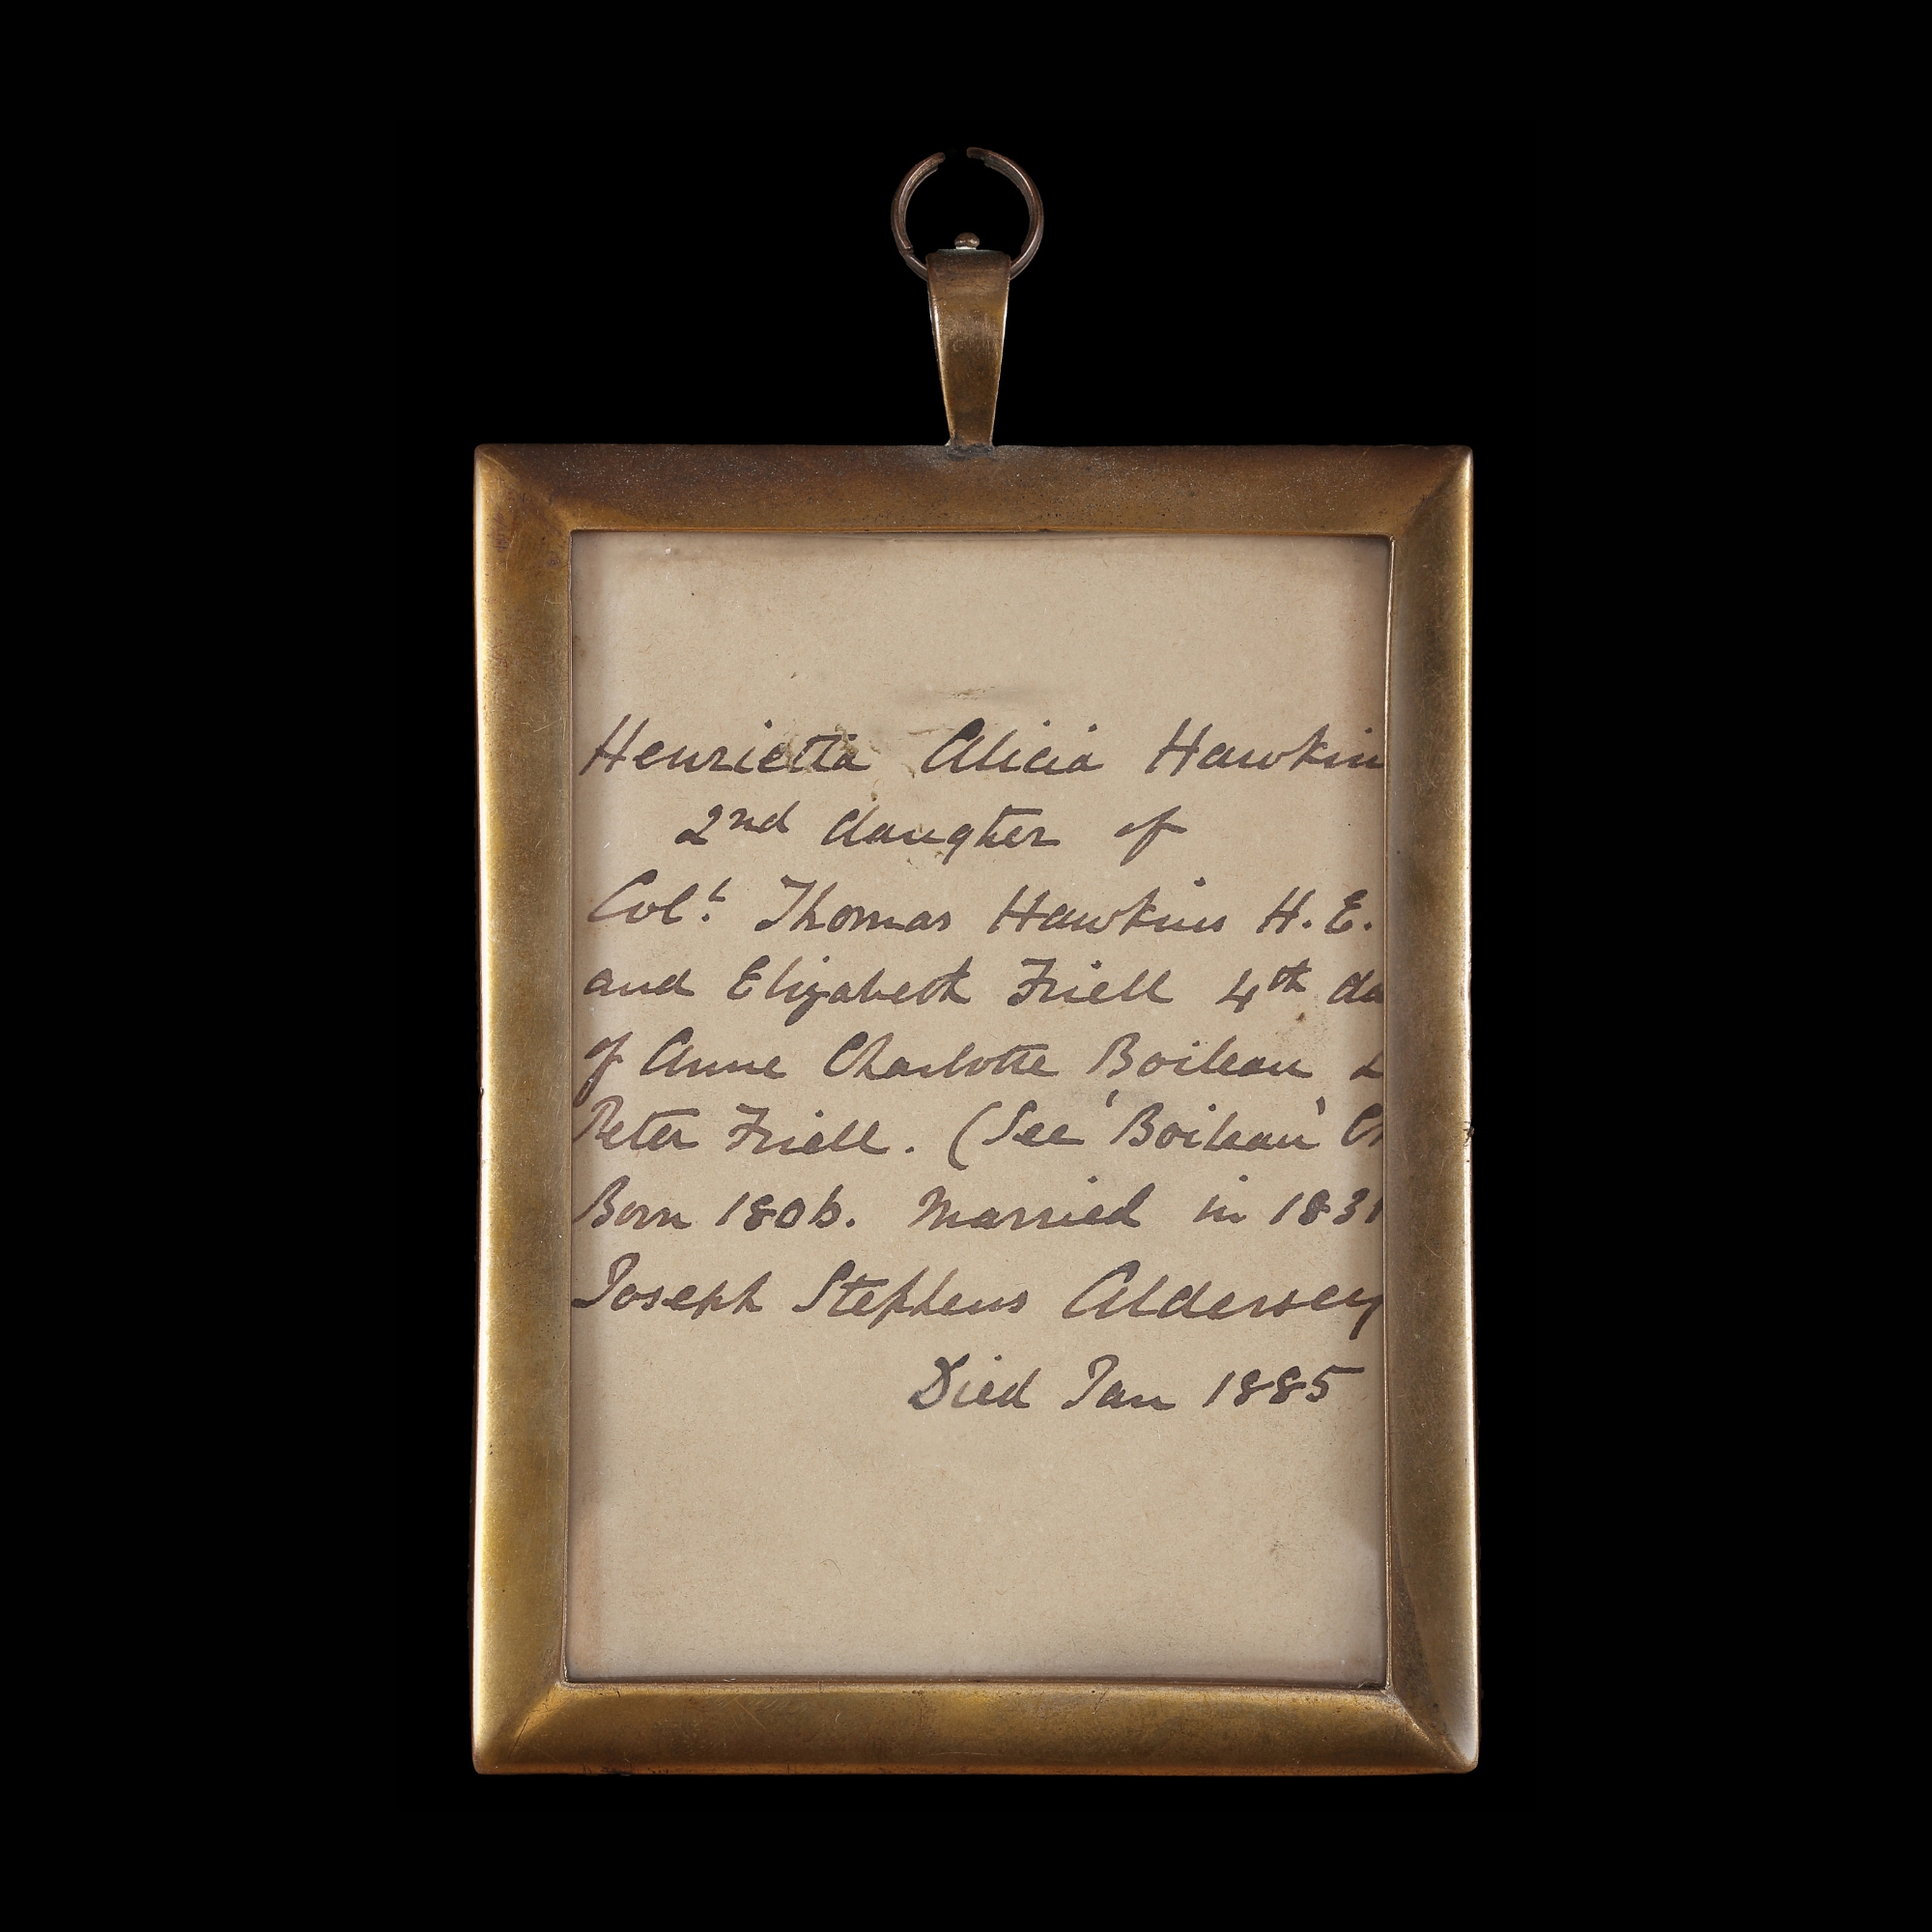 Henrietta Alicia Hawkin
2nd daugter of
Colˡ. Thomas Hawkins H.E.
and Elizabeth Friell 4th da
of Anne Charlotte Boileau &
Peter Friell. (See 'Boileau'
Born 1806. Married in 1831
Joseph Stephens Aldersey
Died Jan 1885